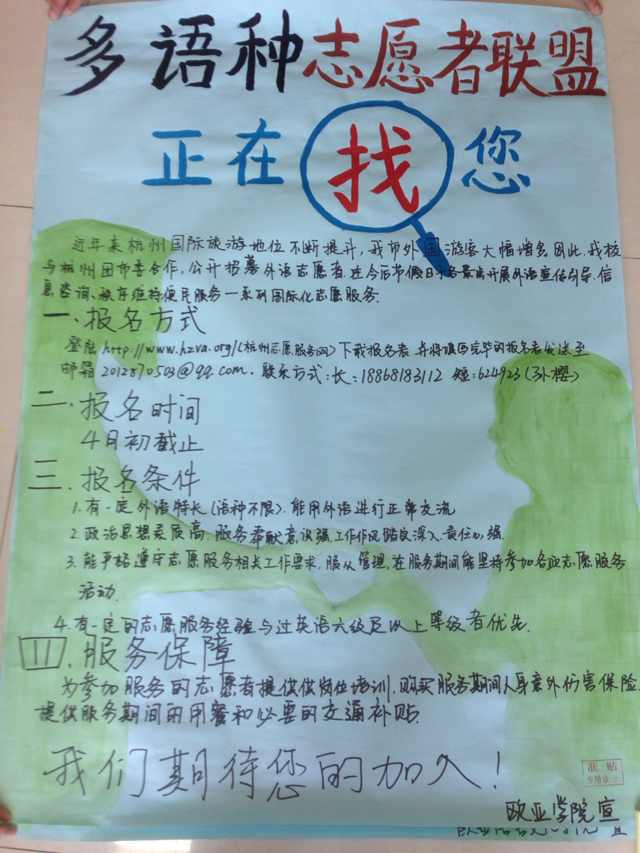 多语种志愿者联盟
正在找您
近年来杭州国际旅游地位不断提升，我市外国游客大幅增多因此，我校
与杭州团市委合作，公开招募外语志愿者，在今后节假日于各景点开展外语宣传引导、信
息咨询、秩序维持便民服务一系列国际化志愿服务.
一.报名方式
登陆http://www.hzva.org/(杭州志愿服务网)下载报名表 并将填写完毕的报名表发送至
邮箱2012870503@qq.com.联系方式:长:18868183112 短:624923(孙樱)
二.报名时间
4月初截止
三.报名条件
1.有一定外语特长(语种不限).能用外语进行正常交流
2.政治思想素质高.服务奉献意识强工作作风踏实深入责任心强.
3.能严格遵守志愿服务相关工作要求.服从管理,在服务期间能坚持参加各项志愿服务
活动.
4.有一定的志愿服务经验与过英语六级及以上等级者优先.
四.服务保障
为参加服务的志愿者提供供岗位培训,购买服务期间人身意外伤害保险
提供服务期间的用餐和必要的交通补贴.
我们期待您的加入！
准贴
欧亚学院宣